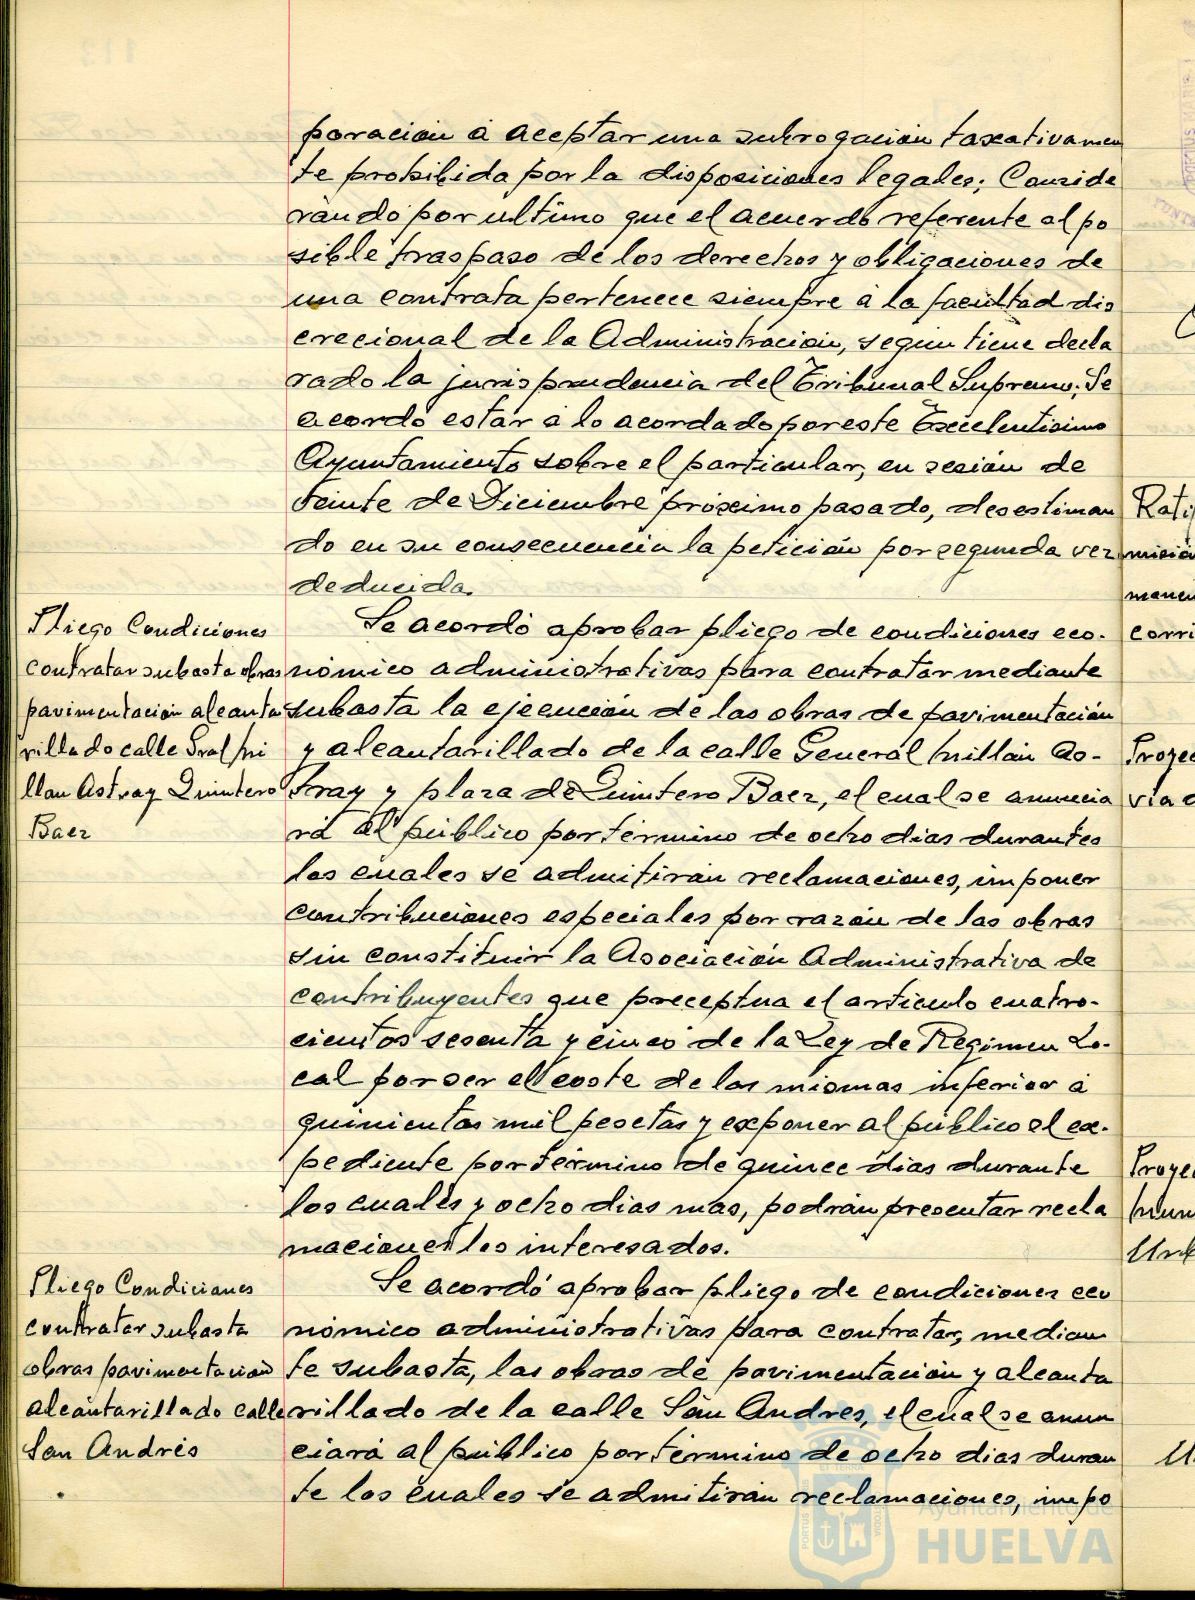 poración á aceptar una subrogación taxativamen
te prohibida por la disposiciones legales; Conside
rando por ultimo que el acuerdo referente al po
sible traspaso de los derechos y obligaciones de
una contrata pertenece siempre á la facultad dis
crecional de la Administración, segun tiene decla
rado la jurisprudencia del Tribunal Supremo; Se
acordó estar á lo acordado por este Excelentisimo
Ayuntamiento sobre el particular, en sesión de
veinte de Diciembre próximo pasado, desestiman
do en su consecuencia la petición por segunda vez
deducida.
Pliego Condiciones
contratar subasta obras
pavimentación alcanta
rillado calle Gral Mi
llan Astray Quintero
Baez
Se acordó aprobar pliego de condiciones eco-
nómico administrativas para contratar mediante
subasta la ejecución de las obras de pavimentación
y alcantarillado de la calle General Millán As-
tray y plaza de Quintero Baez, el cual se anuncia
rá al público por término de ocho dias durantes
los cuales se admitirán reclamaciones, imponer
contribuciones especiales por razón de las obras
sin constituir la Asociación Administrativa de
contribuyentes que preceptua el articulo cuatro-
cientos sesenta y cinco de la Ley de Regimen Lo-
cal por ser el coste de las mismas inferior á
quinientas mil pesetas y exponer al público el ex-
pediente por término de quince dias durante
los cuales y ocho dias mas, podrán presentar recla
maciones los interesados.
Pliego Condiciones
contratar subasta
obras pavimentación
alcantarillado calle
San Andrés
Se acordó aprobar pliego de condiciones eco
nómico administrativas para contratar, median
te subasta, las obras de pavimentación y alcanta
rillado de la calle San Andres, el cual se anun
ciará al público por término de ocho dias duran
te los cuales se admitirán reclamaciones, impo
Rati
misión
manen
corri
Proyec
via
Proyec
Mun
Urb
Ayuntamiento de
HUELVA